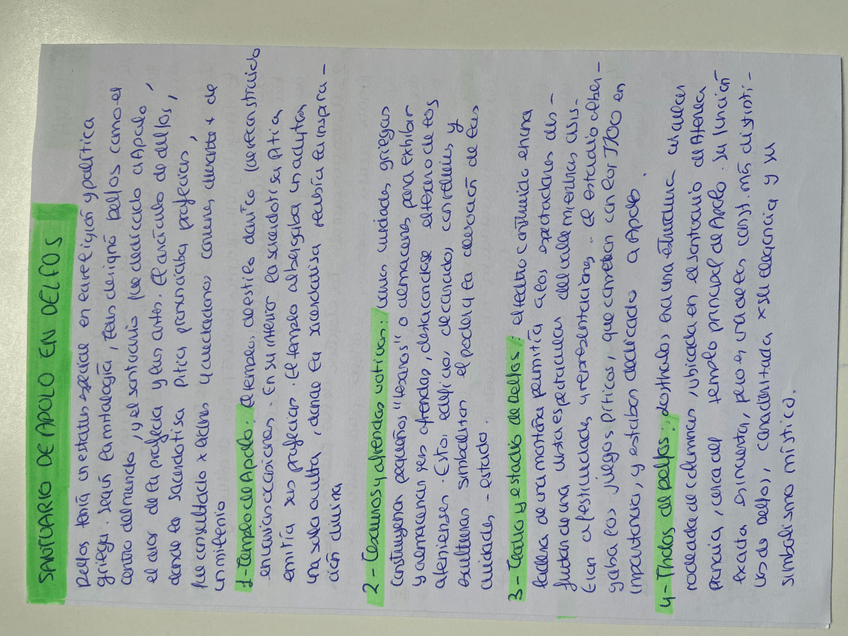 SANTUARIO DE APOLO EN DELFOS
Delfos tenía un estatus especial en la religión y política
griega. Según la mitología, Zeus designó Delfos como el
centro del mundo, y el santuario fue dedicado a Apolo,
el dios de la profecía y las artes. El oráculo de delfos,
donde la sacerdotisa pitia pronunciaba profecías,
fue consultado x líderes y ciudadanos comunes durante + de
un milenio
1- Templo de Apolo: El templo, de estilo dórico fue reconstruido
en varias ocasiones. En su interior la sacerdotisa Pitia
emitía sus profecías. El templo albergaba un adyton
una sala oculta, donde la sacerdotisa recibía la inspira-
ción divina
2- Tesoros y ofrendas votivas: varias ciudades griegas
construyeron pequeños "tesoros" o almacenes para exhibir
y almacenar sus ofrendas, destacándose el tesoro de los
atenienses. Estos edificios decorados con relieves y
esculturas simbolizan el poder y la devoción de las
ciudades-estado.
3- Teatro y estadio de Delfos: el teatro construido en una
ladera de una montaña permitía a los espectadores dis-
frutar de una vista espectacular del valle mientras asis-
tían a festividades y representaciones. El estadio alber-
gaba los juegos Píticos, que competían con los JJOO en
importancia, y estaban dedicados a Apolo.
4- Tholos de Delfos: destinados era una estructura circular
rodeada de columnas, ubicada en el santuario de Atenea
Pronaia, cerca del templo principal de Apolo. Su función
exacta es incierta, pero es una de las const. más distinti-
vas de Delfos, caracterizada x su elegancia y su
simbolismo místico.